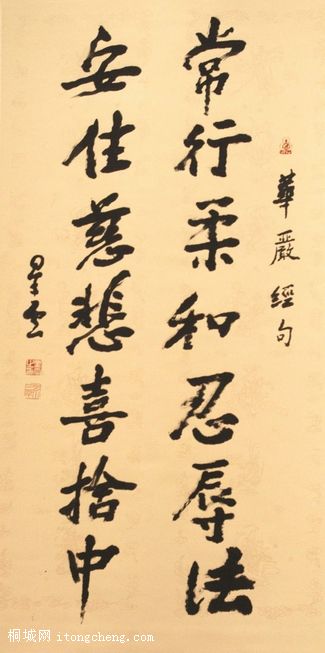 華嚴經句
常行柔和忍辱法
安住慈悲喜捨中
星雲
桐城网 itongcheng.com